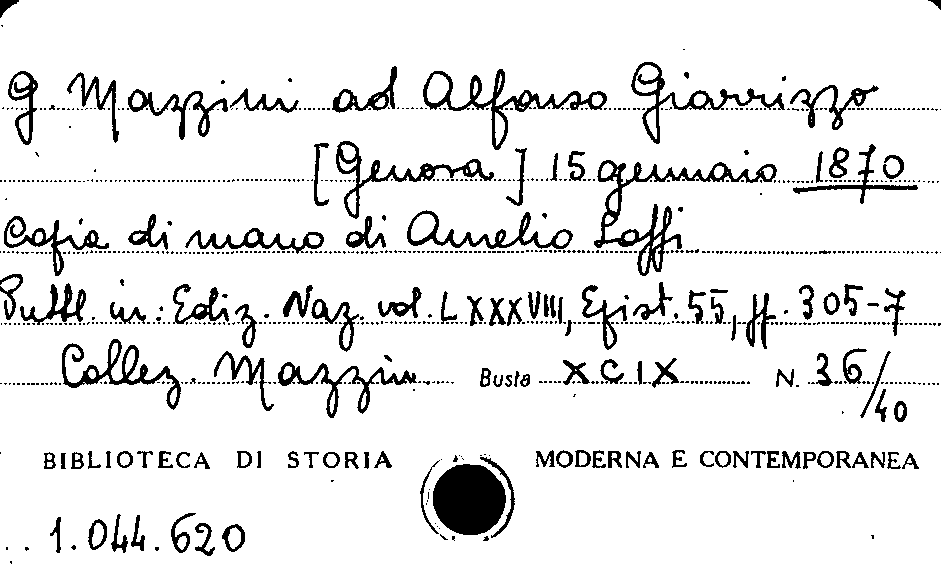 G. Mazzini ad Alfonso Giarrizzo
[Genova] 15 gennaio 1870
Copia di mano di Aurelio Saffi
Pubbl. in: Ediz. Naz. vol. LXXXVIII, Epist. 55, pp. 305-7
Collez. Mazzin. Busta XCIX N. 36/40
BIBLIOTECA DI STORIA MODERNA E CONTEMPORANEA
1.044.620